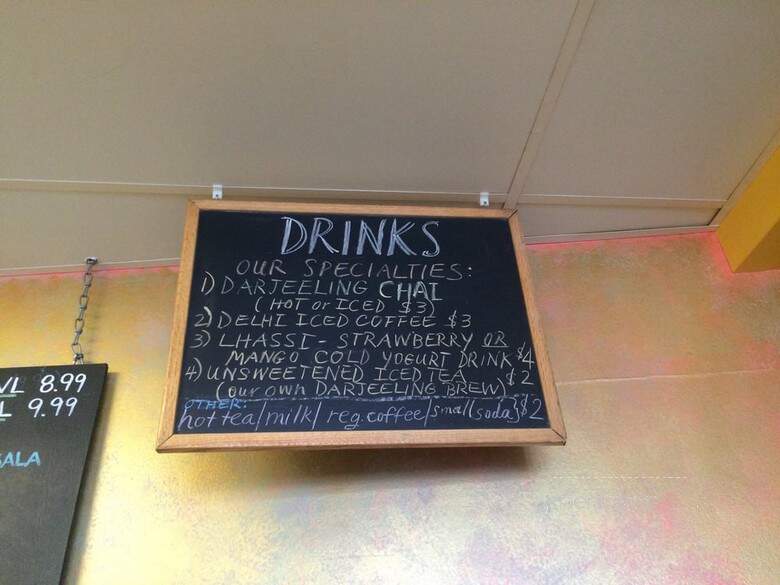 DRINKS
OUR SPECIALTIES:
1) DARJEELING CHAI
(HOT or ICED $3)
2) DELHI ICED COFFEE $3
3) LHASSI - STRAWBERRY OR
MANGO COLD YOGURT DRINK $4
4) UNSWEETENED ICED TEA $2
(our own DARJEELING BREW)
OTHER:
hot tea/milk/ reg. coffee/small soda $2
VL 8.99
L 9.99
ALA